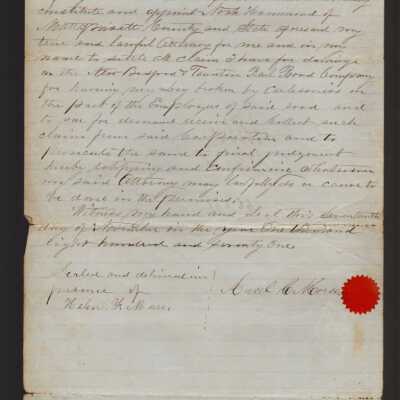 constitute and appoint Noah Hammond of
Mattapoisett County and State aforesaid my
true and lawful Attorney for me and in my
name to settle a claim I have for damage
on the New Bedford & Taunton Rail Road Company
for having my leg broken by Carlessness on
the part of the Employees of said road and
to sue for demand receive and Collect such
claim from said Corporation and to
prosecute the same to final judgment
hereby ratifying and confirming whatsoever
my said Attorney may lawfully do or cause to
be done in the permises.
Witness my hand and Seal this seventeenth
day of November in the year One thousand
Eight hundred and Seventy One
Sealed and delivered in
presence of
Helen